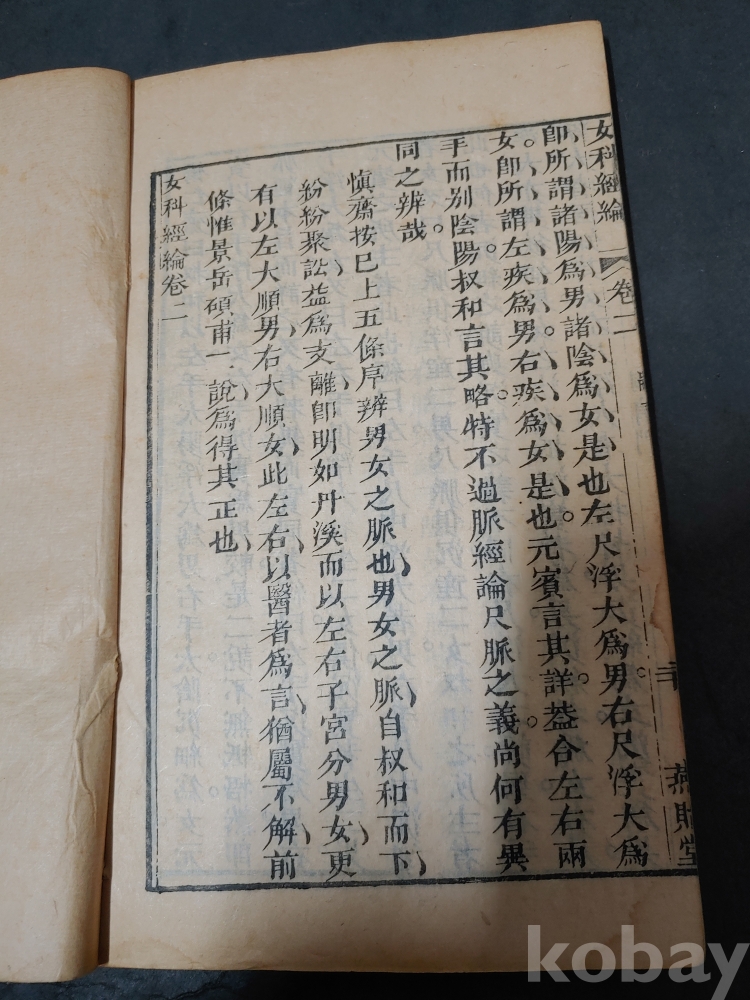 女科經綸 卷二
即所謂諸陽爲男諸陰爲女是也左尺浮大爲男右尺浮大爲
女即所謂左疾爲男右疾爲女是也元賓言其詳葢合左右兩
手而別陰陽叔和言其略特不過脈經論尺脈之義尚何有異
同之辨哉
慎齋按已上五條序辨男女之脈也男女之脈自叔和而下
紛紛聚訟益爲支離即明如丹溪而以左右子宮分男女更
有以左大順男右大順女此左右以醫者爲言猶屬不解前
條惟景岳碩甫一說爲得其正也
女科經綸卷二
kobay